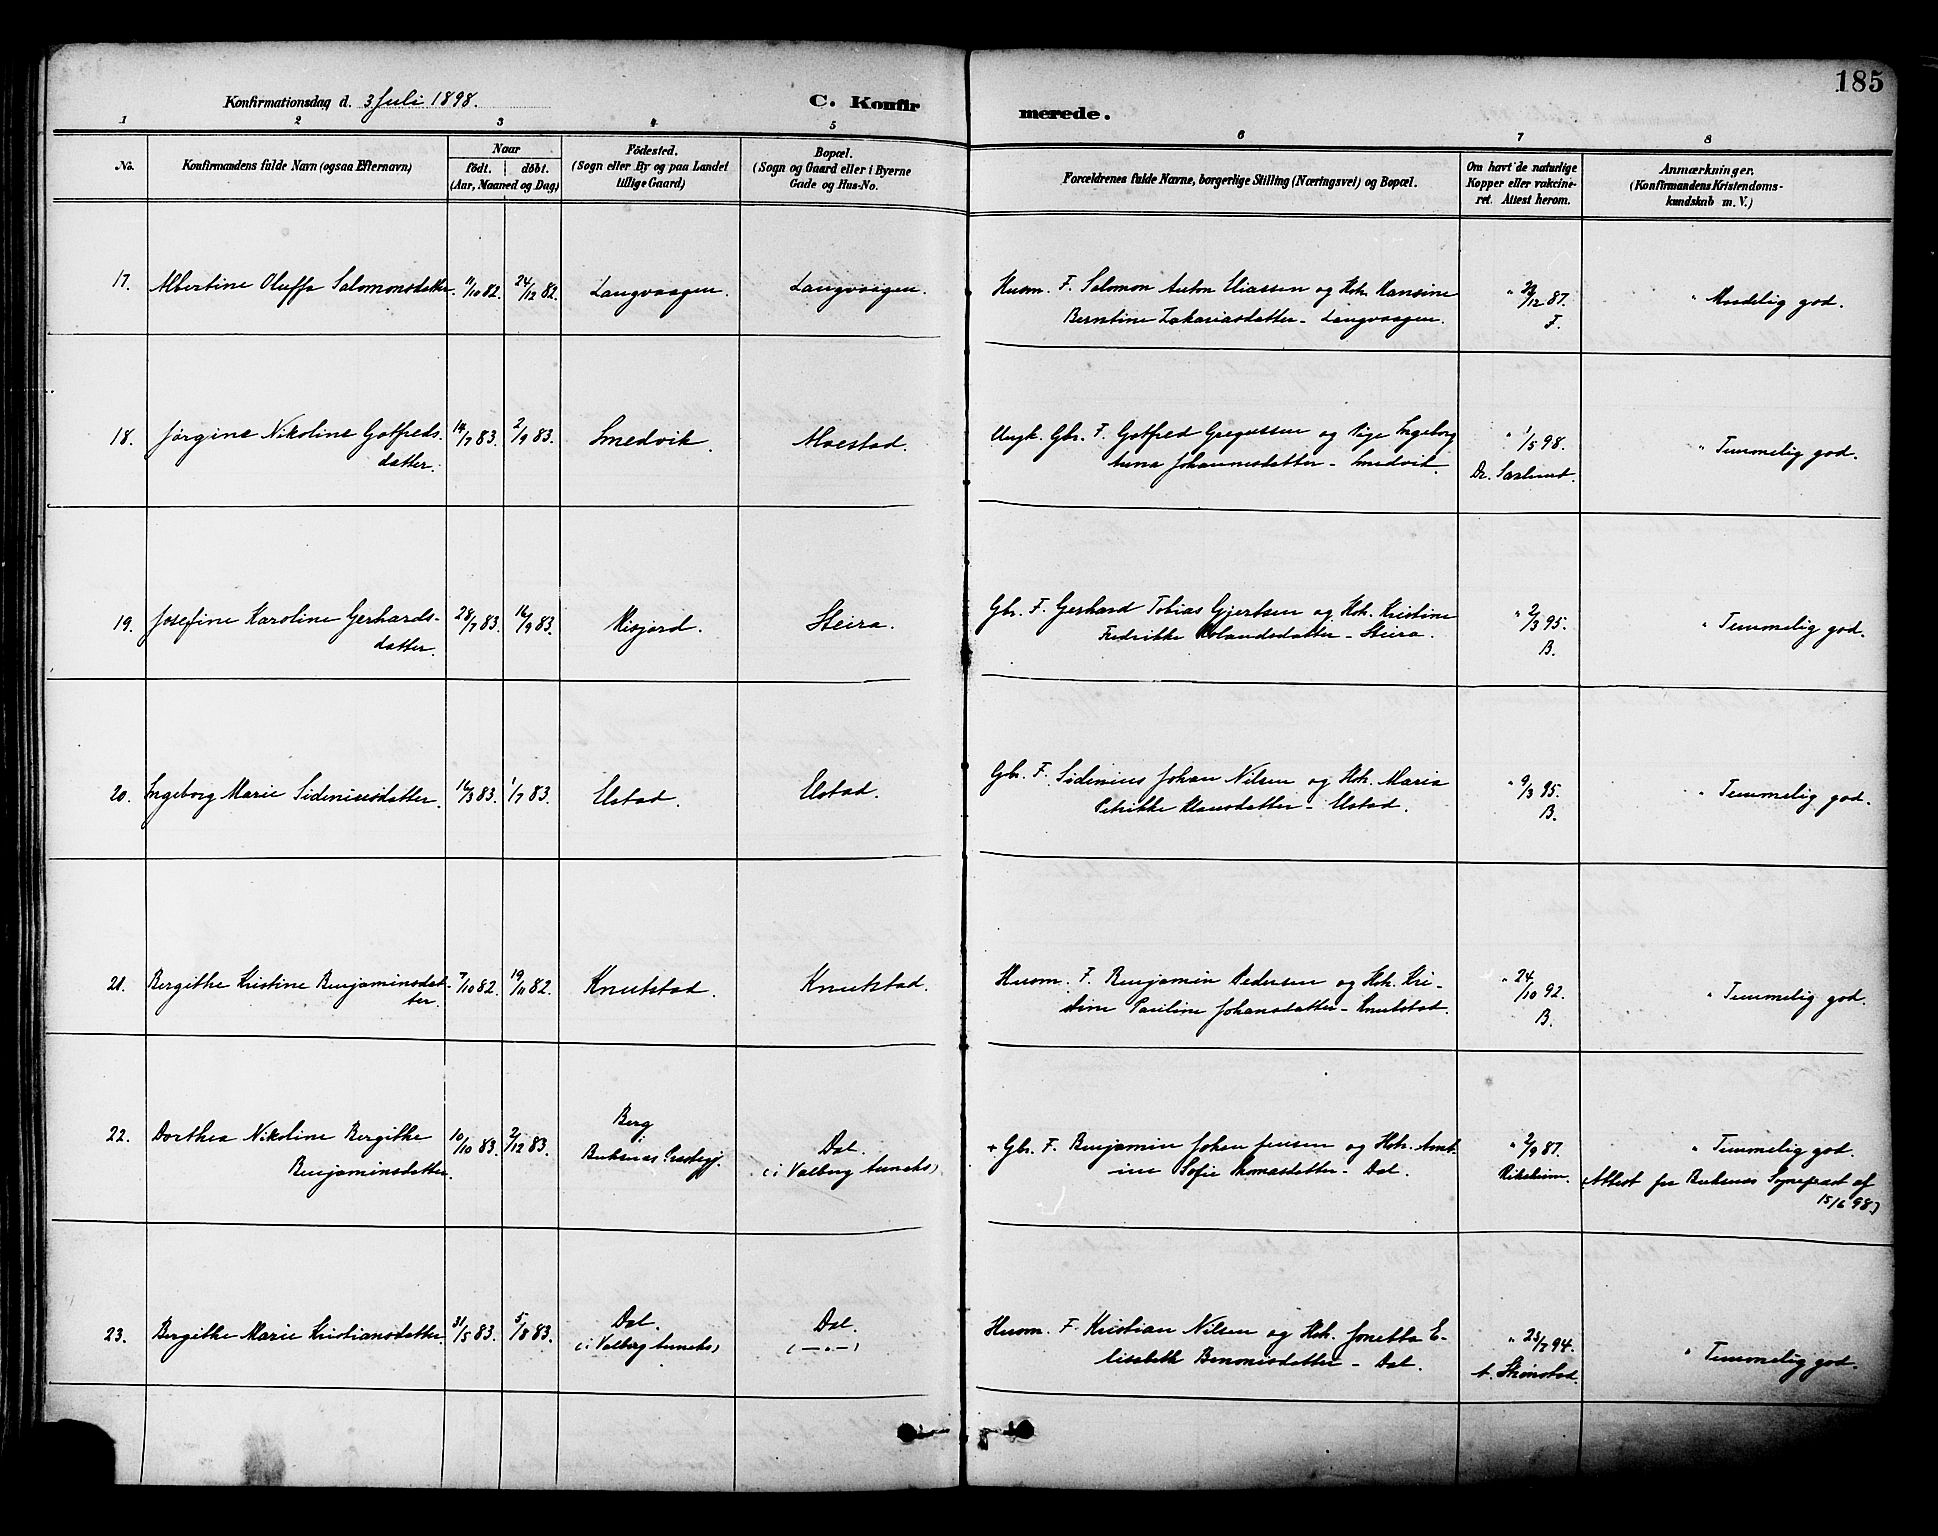 185
Konfirmationsdag d. 3 Juli 1898.
C. Konfirmerede.
1 2 3 4 5 6 7 8
No.
Konfirmandens fulde Navn (ogsaa Efternavn)
Naar
födt. döbt.
(Aar, Maaned og Dag)
Födested.
(Sogn eller By og paa Landet
tillige Gaard)
Bopæl.
(Sogn og Gaard eller i Byerne
Gade og Hus-No.
Forældrenes fulde Navne, borgerlige Stilling (Næringsvei) og Bopæl.
Om havt de naturlige
Kopper eller vakcine-
ret. Attest herom.
Anmærkninger.
(Konfirmandens Kristendoms-
kundskab m. V.)
17. Albertine Oluffa Salomonsdatter. 11/10 82. 24/12 82. Langvaagen. Langvaagen.
Husm. F. Salomon Anton Eliassen og Hst. Hansine
Berntine Zakariasdatter - Langvaagen.
" 30/12 87.
F.
" Maadelig god.
18. Jørgine Nikoline Gotfreds-
datter. 14/7 83. 2/9 83. Smedvik. Moestad.
Ungk. Gbr. F. Gotfred Gregussen og Pige Ingeborg
Anna Johannesdatter - Smedvik.
" 1/5 98.
Dr.
" Temmelig god.
19. Josefine Karoline Gerhards-
datter. 28/7 83. 16/9 83. Misjord. Steira.
Gbr. F. Gerhard Tobias Gjertsen og Hst. Kristine
Fredrikke Rolandsdatter - Steira.
" 2/3 95.
B.
" Temmelig god.
20. Ingeborg Marie Sideniusdatter. 16/3 83. 1/7 83. Ustad. Ustad.
Gbr. F. Sidenius Johan Nilsen og Hst. Maria
Petrikke Klausdatter - Ustad.
" 9/3 95.
B.
" Temmelig god.
21. Bergithe Kristine Benjaminsdat-
ter. 7/10 82. 19/11 82. Knutstad. Knutstad.
Husm. F. Benjamin Pedersen og Hst. Kri-
stine Pauline Johansdatter - Knutstad.
" 24/10 92.
B.
" Temmelig god.
22. Dorthea Nikoline Bergithe
Benjaminsdatter. 10/10 83. 2/12 83. Berg
Buksnæs Prestegj. Dal.
(i Valberg Anneks)
+ Gbr. F. Benjamin Johan Jensen og Hst. Ant-
ine Sofie Tomasdatter - Dal.
" 2/9 87.
Rikheim.
" Temmelig god.
(Attest fra Buksnæs Sognepræst af
15/6 98.)
23. Bergithe Marie Kristiansdatter. 31/5 83. 5/8 83. Dal.
(i Valberg Anneks) Dal.
(—„—)
Husm. F. Kristian Nilsen og Hst. Jonetta E-
lisabeth Benonisdatter - Dal.
" 23/7 94.
A. Skønstad.
" Temmelig god.